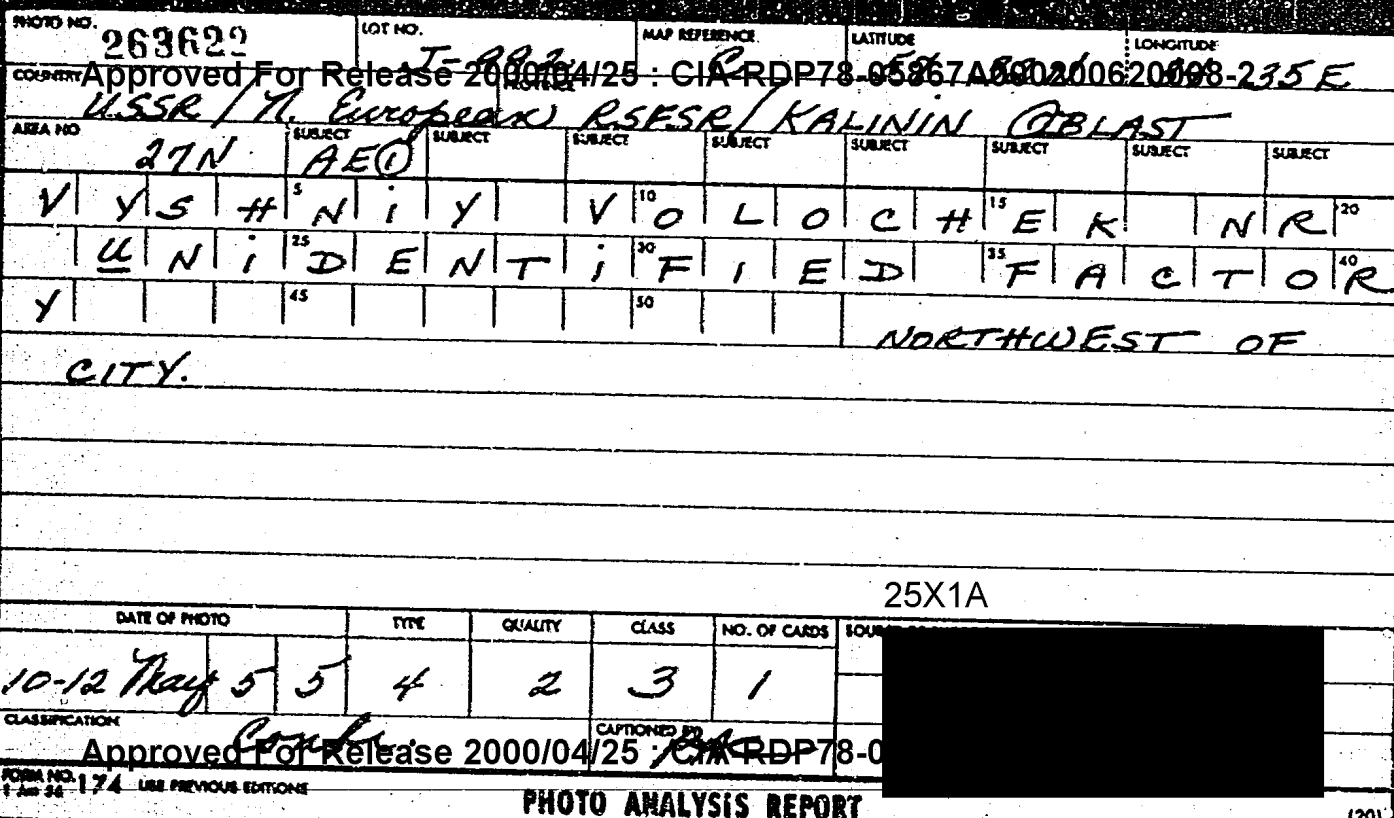 PHOTO NO. 263622 LOT NO. MAP REFERENCE LATITUDE LONGITUDE
COUNTRY Approved For Release 2000/04/25 : CIA-RDP78-05867A000200620008-2 35 E
PROVINCE
USSR / N. European RSFSR / KALININ OBLAST
AREA NO 27N SUBJECT AE① SUBJECT SUBJECT SUBJECT SUBJECT SUBJECT SUBJECT SUBJECT
VYSH 5 NIY V 10 OLOCH 15 EK NR 20
UNI 25 DENTI 30 FIED 35 FACTO 40 R
Y 45 50
NORTHWEST OF
CITY.
25X1A
DATE OF PHOTO TYPE QUALITY CLASS NO. OF CARDS
10-12 May 5 5 4 2 3 1
CLASSIFICATION CAPTIONED BY
Approved For Release 2000/04/25 : CIA-RDP78-0
FORM NO. 174 USE PREVIOUS EDITIONS
1 Jun 56
PHOTO ANALYSIS REPORT
(20)